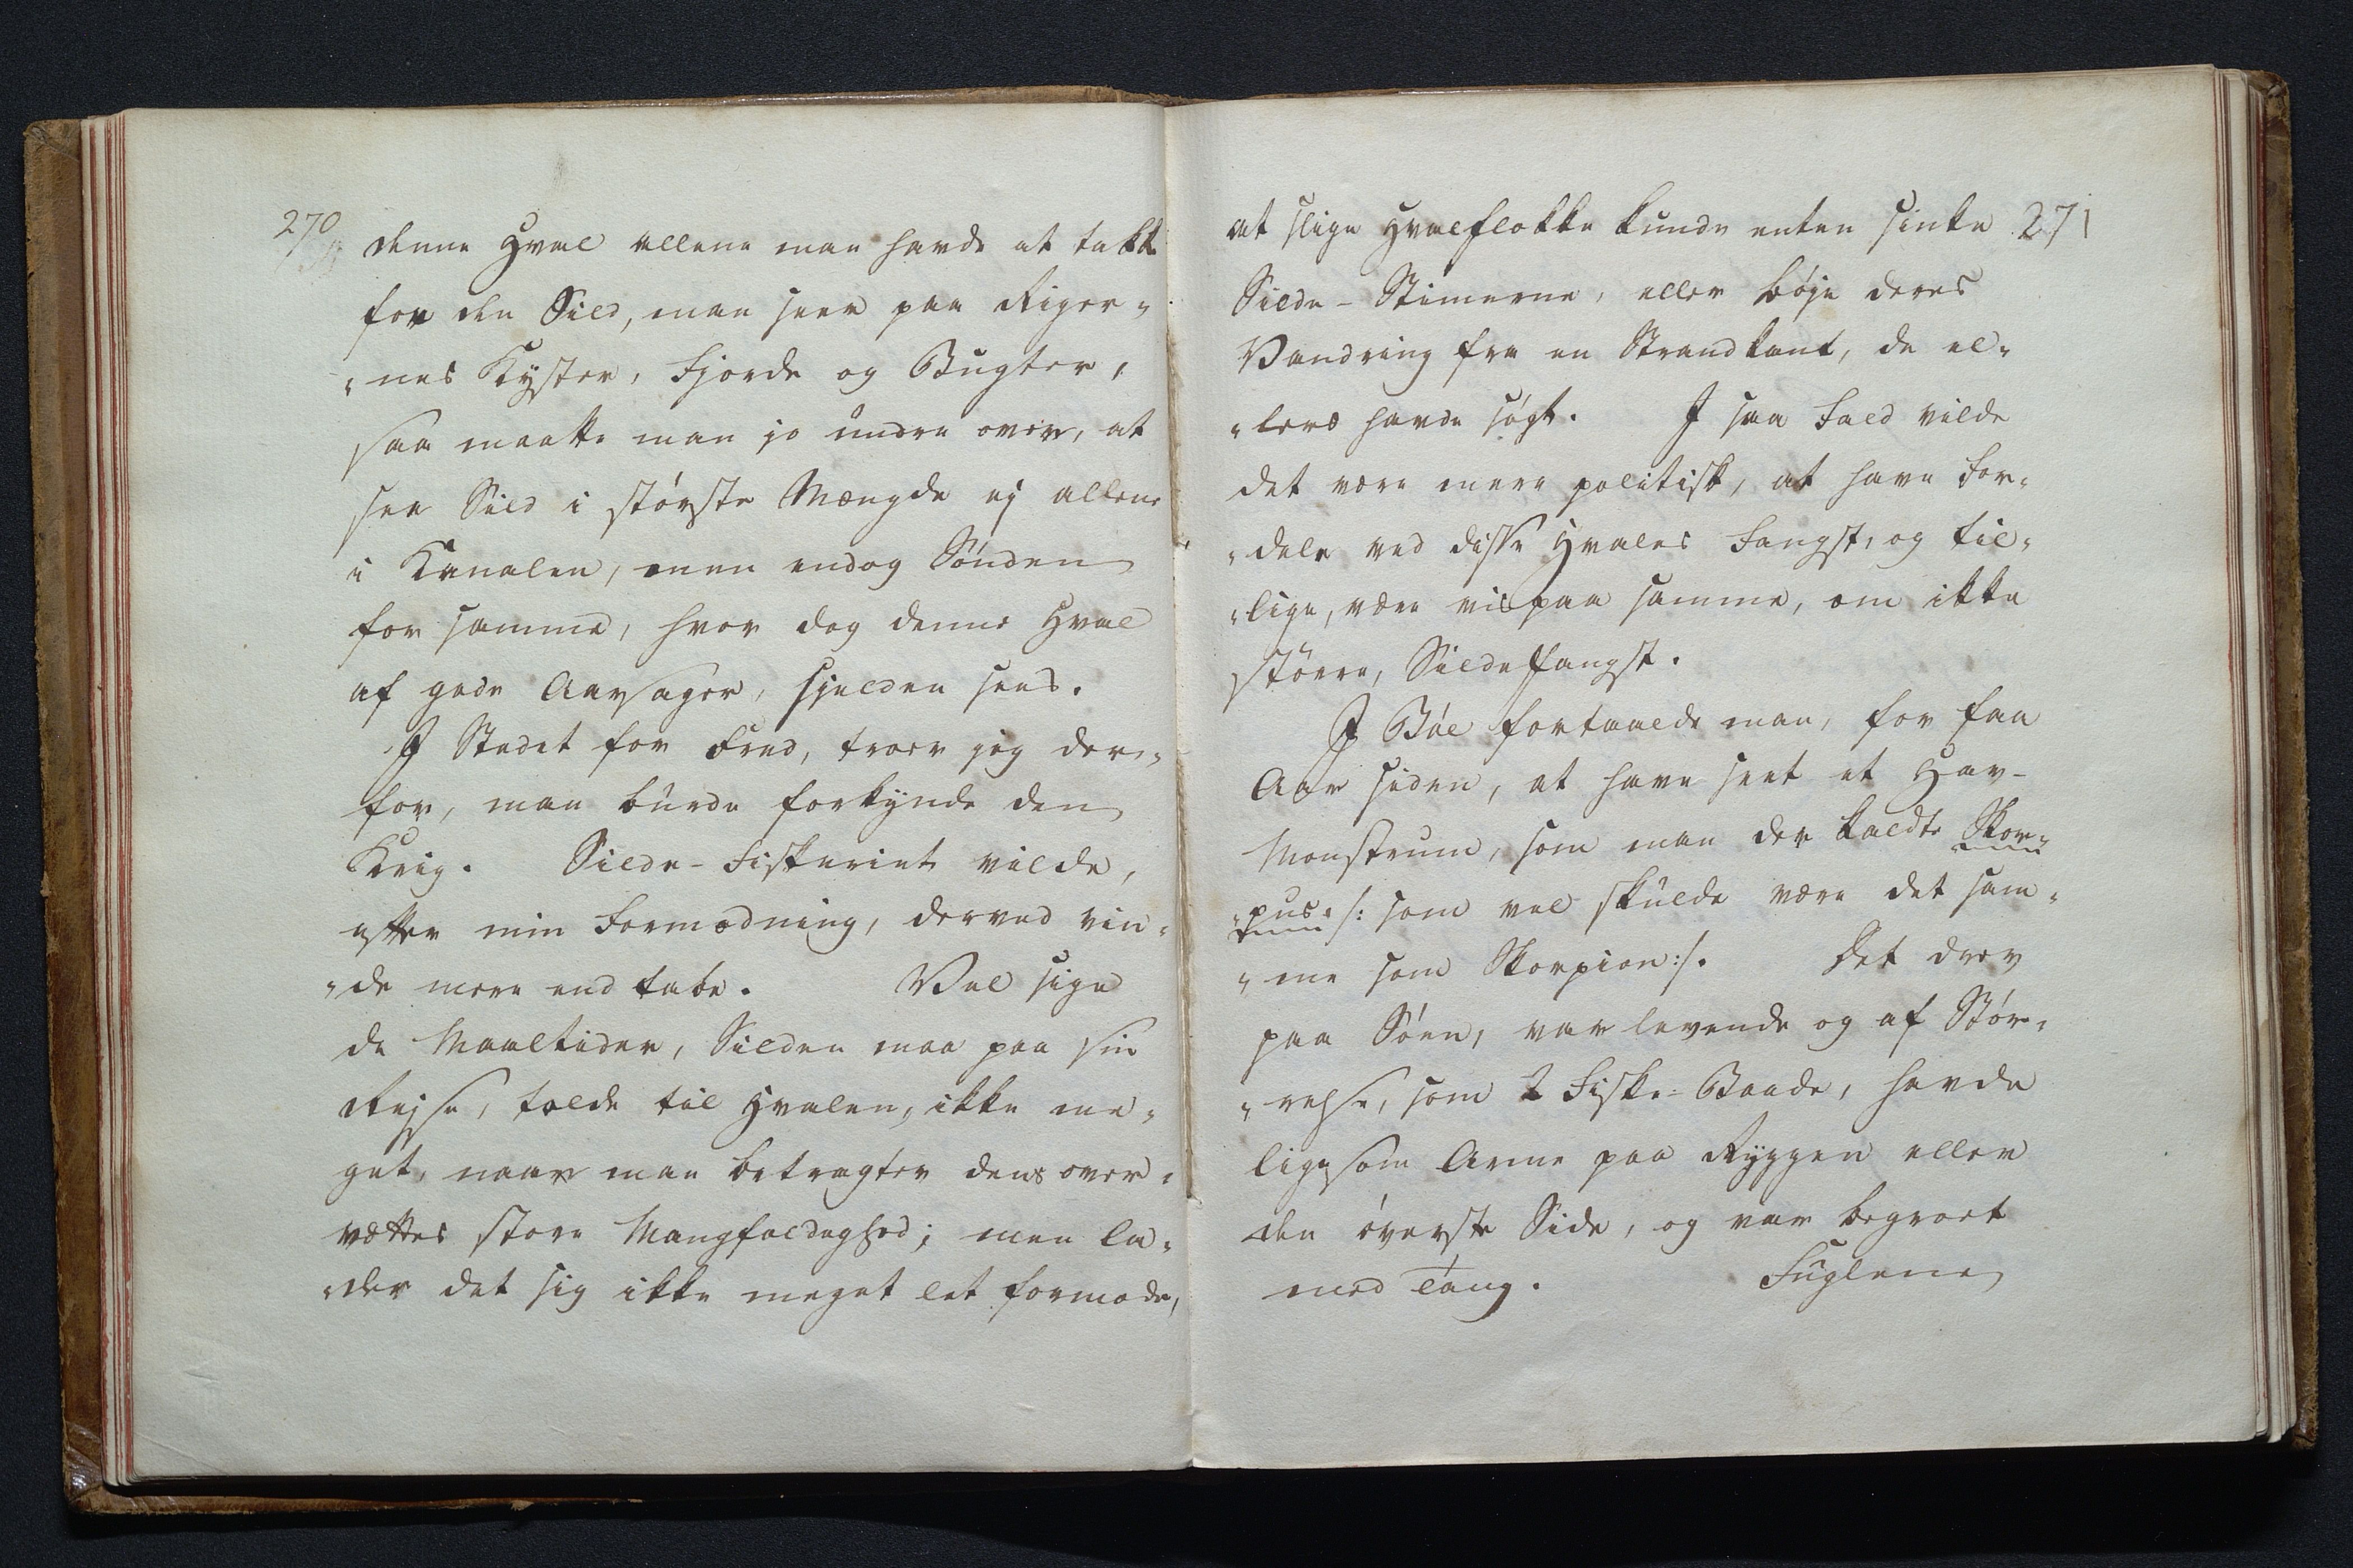 270
denne Hval allene man havde at takke
for den Sild, man seer paa Riger-
"nes Kyster, Fjorde og Bugter,
saa maatte man jo undre over, at
see Sild i største Mængde ej allene
i Kanalen, men endog Sönden
for samme, hvor dog denne Hval
af gode Aarsager, sjelden sees.
I Stedet for Fred, troer jeg der-
for, man burde forkynde den
Krig. Silde-Fiskeriet vilde,
efter min Formodning, derved vin-
"de mere end tabe. Vel sige
de Maaltider, Silden maa paa sin
Rejse, tolde til Hvalen, ikke me-
get, naar man betragter dens over-
vættes store Mangfoldighed; men la-
"der det sig ikke meget let formode,
271
at slige Hvalflokke kunde enten sinke
Silde-Stimerne, eller böje deres
Vandring fra en Strandkant, de el-
"lers havde søgt. I saa Fald vilde
det være mere politisk, at have For-
"dele ved disse Hvales Fangst, og til-
"lige, være vis paa samme, om ikke
större, Sildefangst.
I Böe fortaalde man, for faa
Aar siden, at have seet et Hav-
Monstrum, som man der kaldte Skor-
"pus /: som vel skulde være det sam-
"me som Skorpion :/. Det drev
paa Söen, var levende og af Stör-
"relse, som 2 Fiske-Baade, havde
ligesom Arme paa Ryggen eller
den överste Side, og var begroet
med Tang. Fuglene